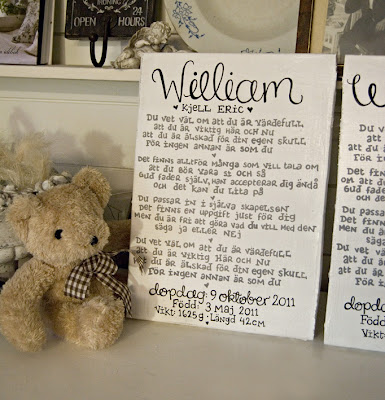 IRONING
OPEN 24
HOURS
William
KJELL ERIC
DU VET VÄL OM ATT DU ÄR VÄRDEFULL
ATT DU ÄR VIKTIG HÄR OCH NU
ATT DU ÄR ÄLSKAD FÖR DIN EGEN SKULL
FÖR INGEN ANNAN ÄR SOM DU
DET FINNS ALLTFÖR MÅNGA SOM VILL TALA OM
ATT DU BÖR VARA SÅ OCH SÅ
GUD FADER SJÄLV, HAN ACCEPTERAR DIG ÄNDÅ
OCH DET KAN DU LITA PÅ
DU PASSAR IN I SJÄLVA SKAPELSEN
DET FINNS EN UPPGIFT JUST FÖR DIG
MEN DU ÄR FRI ATT GÖRA VAD DU VILL MED DEN
SÄGA JA ELLER NEJ
DU VET VÄL OM ATT DU ÄR VÄRDEFULL
ATT DU ÄR VIKTIG HÄR OCH NU
ATT DU ÄR ÄLSKAD FÖR DIN EGEN SKULL
FÖR INGEN ANNAN ÄR SOM DU
dopdag: 9 oktober 2011
Född: 3 maj 2011
Vikt: 1625g Längd 42cm
W
DU VET VÄL
ATT DU
ATT DU ÄR
FÖR
DET FINNS ALL
ATT
GUD FADER
DU PASSAR
DET FINNS
MEN DU ÄR
DU VET VÄL
ATT DU
ATT DU ÄR
FÖR
dopdag
Född
Vikt: 1